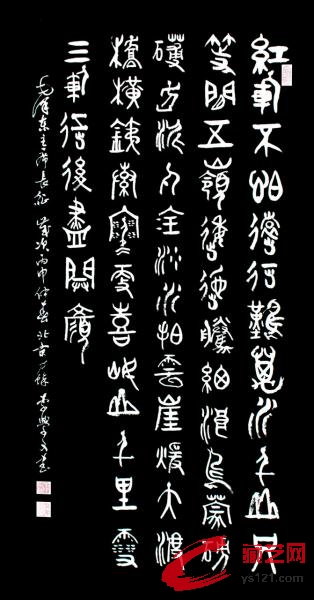 紅軍不怕遠征難萬水千山只
等閒五嶺逶迤騰細浪烏蒙磅
礴走泥丸金沙水拍雲崖暖大渡
橋橫鐵索寒更喜岷山千里雪
三軍過後盡開顏
毛澤東主席長征 歲次丙申仲春北京
藏艺网
ys121.com